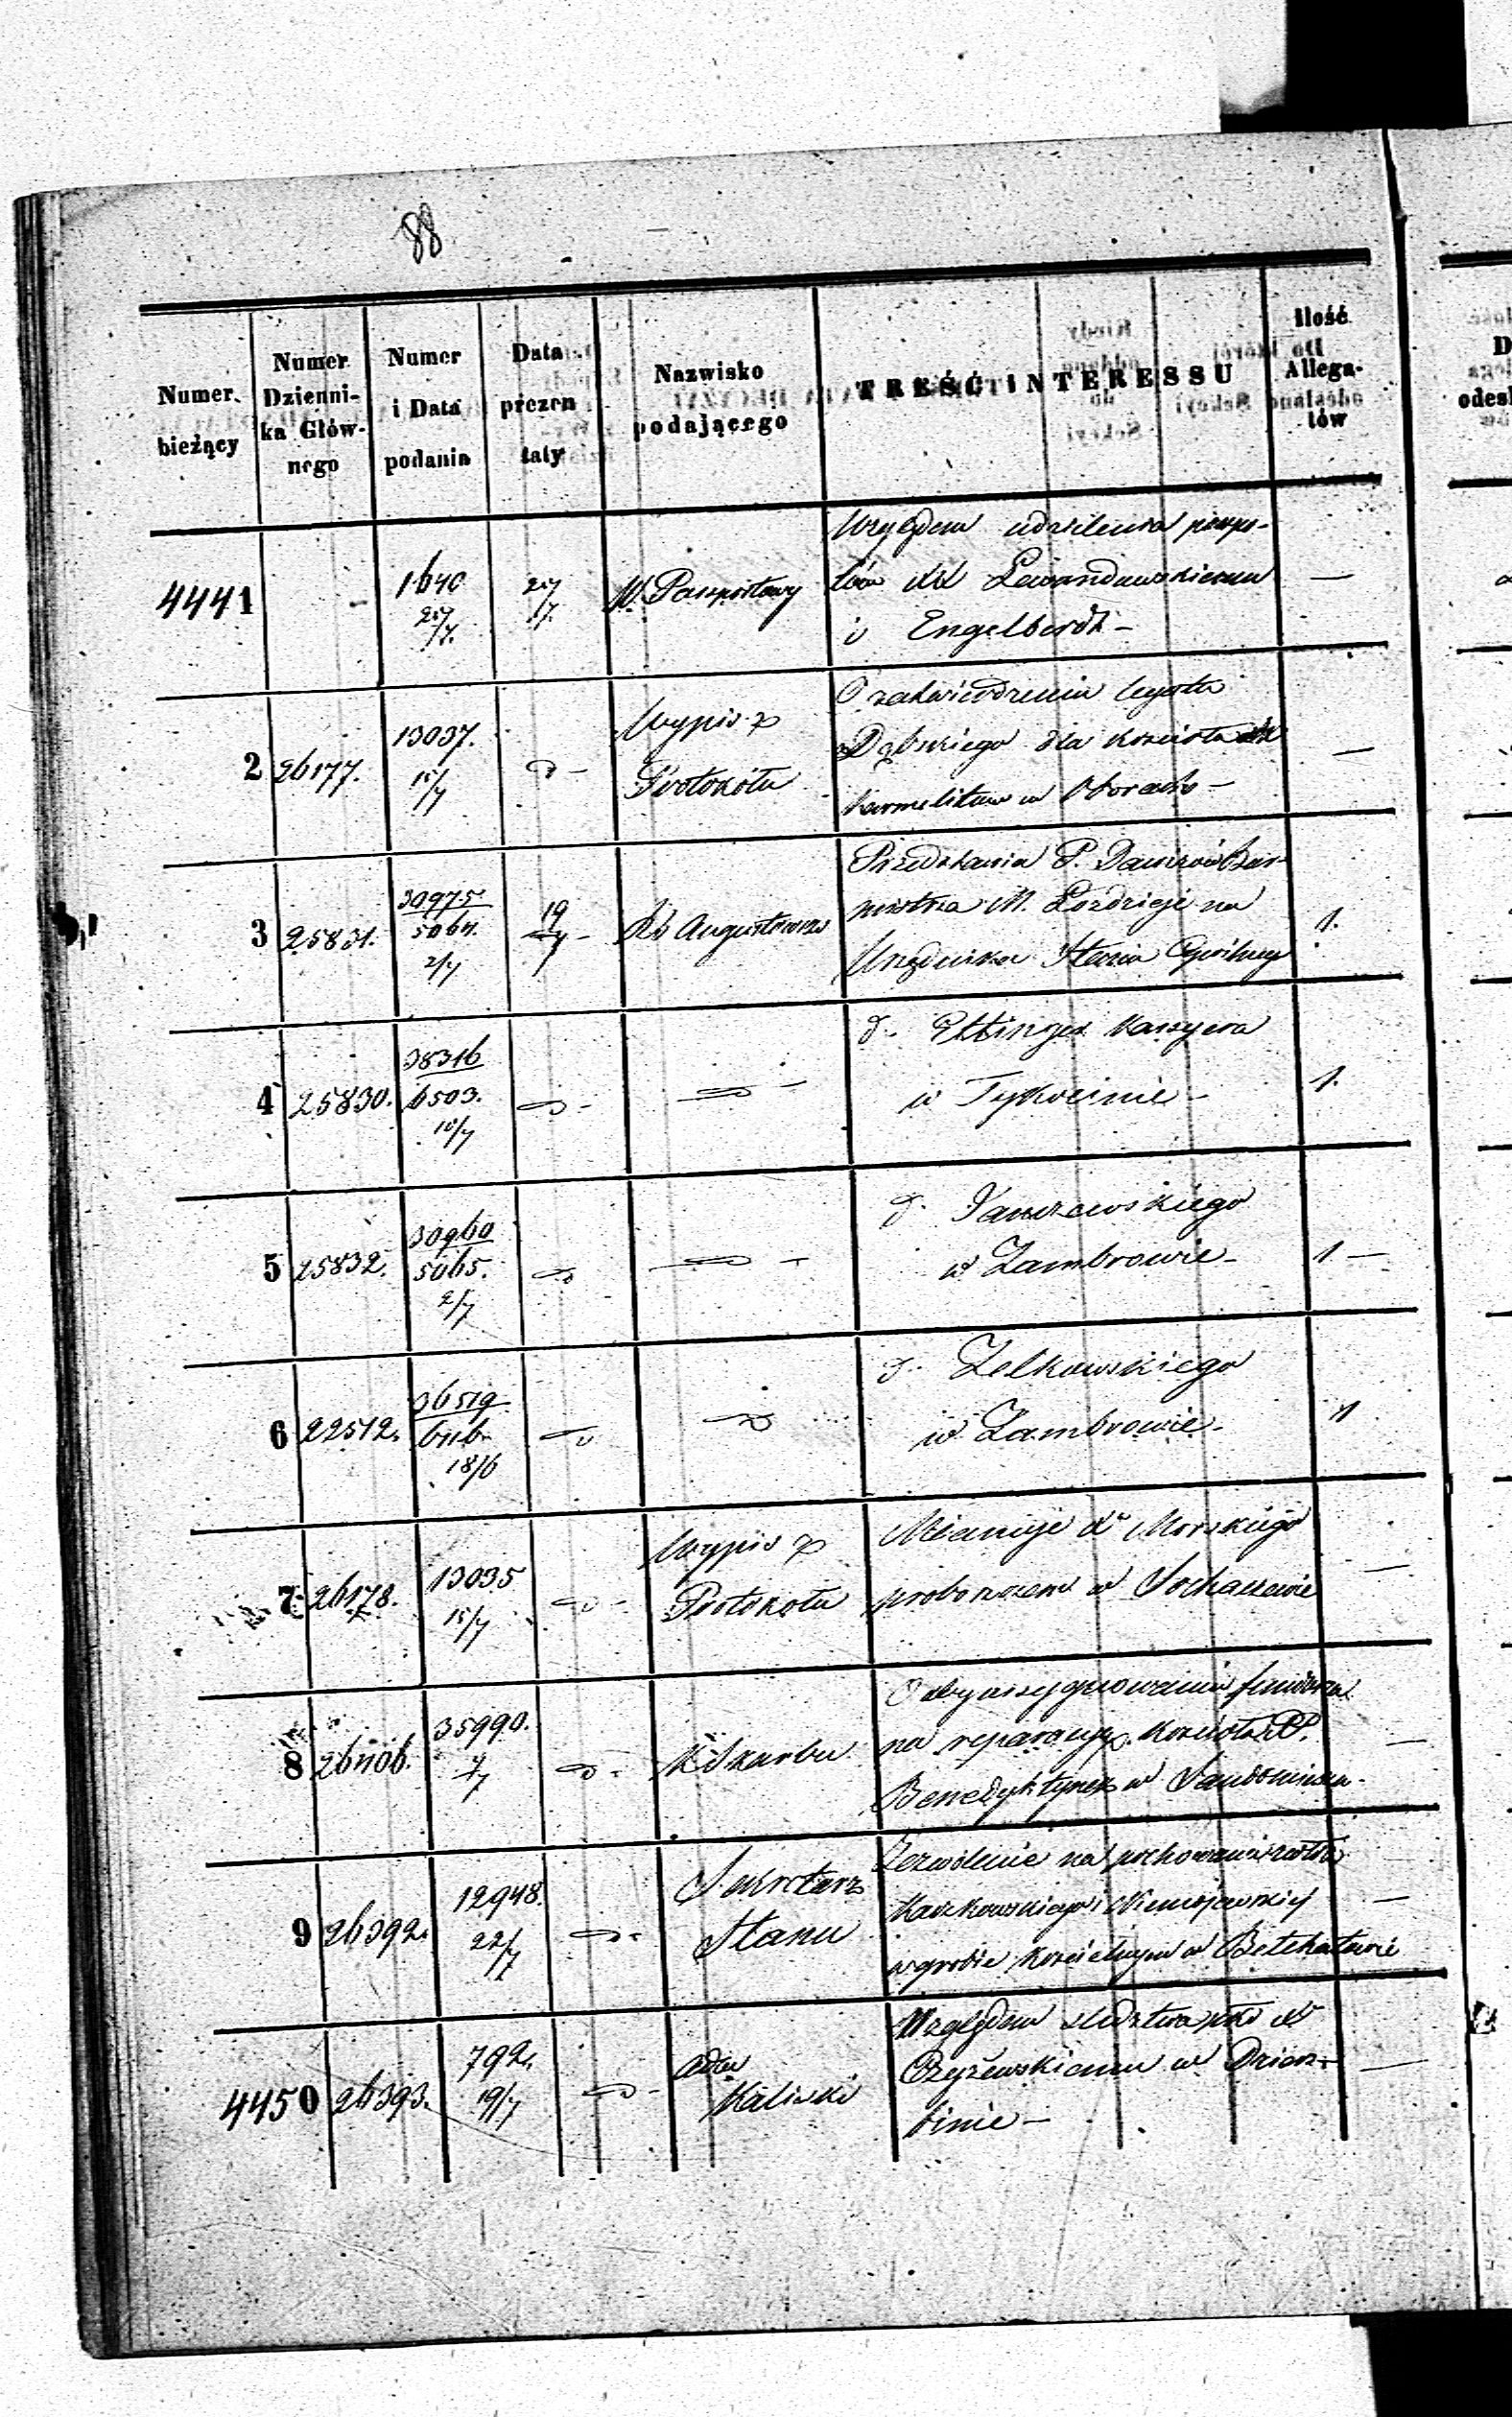 88
Numer bieżący
Numer Dzienni-ka Głów-nego
Numer i Data podania
Data prezen taty
Nazwisko podającego
TREŚĆ INTERESSU
Ilość Allega-tów
4441
1640
W. Paszportowy
Względem udzielenia paszpo-
tów XX Lewandowskiemu
i Engelberdt –
2 26177.
13037.
15/7
Wypis z
Protokołu
O zatwierdzeniu legatu
Dąbskiego dla kościoła XX
Karmelitów w Oborach –
3 25831.
30975
5064.
2/7
19
7
Rb Augustowski
Przedstawia P.
M. Łozdzieje na
Urzędnika Stanu Cywilnego
1.
4 25830.
38316
6503.
10/7
d. Ettinger Kassyera
w Tykocinie –
1.
5 25832.
30960
5065.
2/7
d.
w Zambrowie –
1 –
6 22512.
36519
18/6
d. Zelkowskiego
w Zambrowie –
1
7 26178.
13035
15/7
Wypis z
Protokołu
Mianuje Xa Morskiego
proboszczem w Sochaczewie
8
35990.
K Skarbu
O wyassygnowanie funduszu
na reparacyę kościoła PP.
Benedyktynek w Sandomierzu
9 26392.
12948.
22/7
Sekretarz
Stanu
Zezwolenie na pochowanie zwłok
w grobie kościelnym w Bełchatowie
4450 26393.
792.
19/7
Adm
Kaliski
Względem śledztwa pko Xr
Czyżewskiemu w